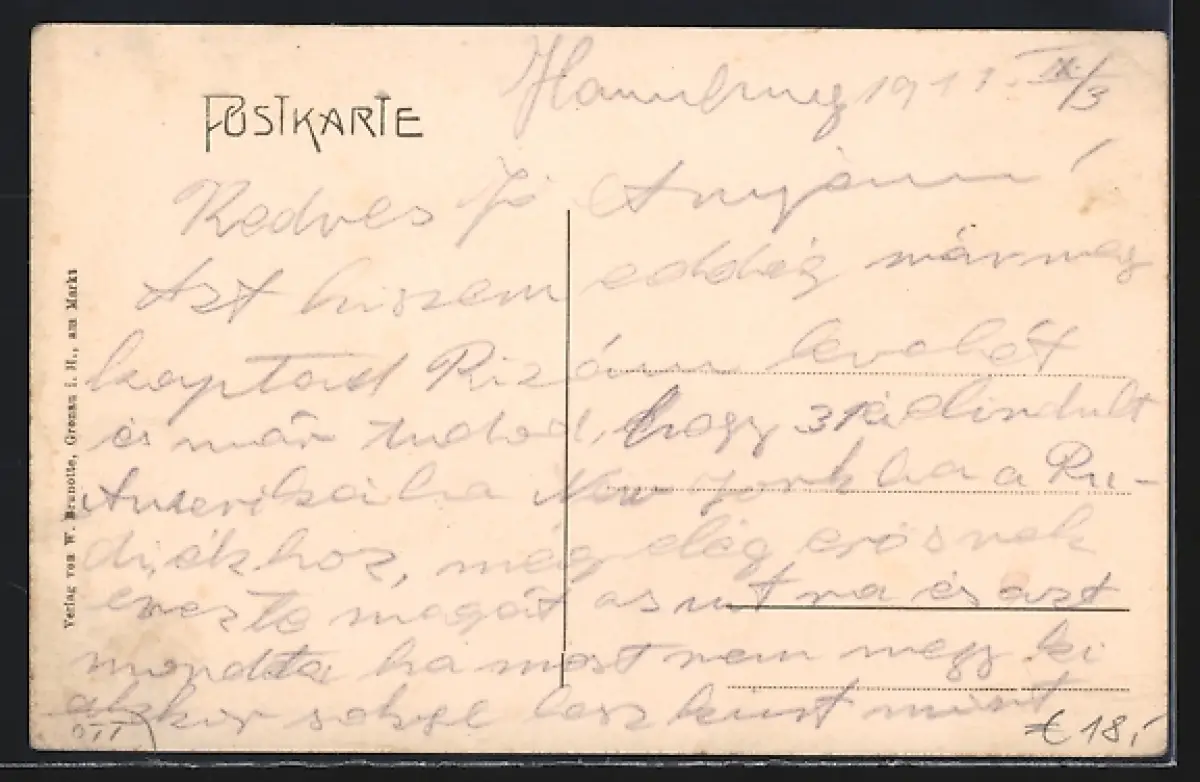 POSTKARTE
Hamburg 1911. IX/3
Kedves Jó Anyám!
Azt hiszem eddég már meg
kaptad Rizám levelét
és már tudod, hogy 31ki elindult
Amerikába New Yorkba a Ru-
diékhoz, még elég erősnek
érezte magát az útra és azt
mondta ha most nem megy ki
akkor sokel lesz kint mint
Verlag von W. Brunotte, Gronau i. H., am Markt
€ 18,-